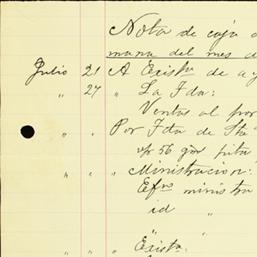 Nota de caja d
mana del mes d
Julio 21 A Exist.ª de a
" 27 " La Fda:
Ventas al por
" " Por Fda de Sta
56 pita
" " " Ministracion:
Ef.vo ministra
id "
" " " Exist.ª